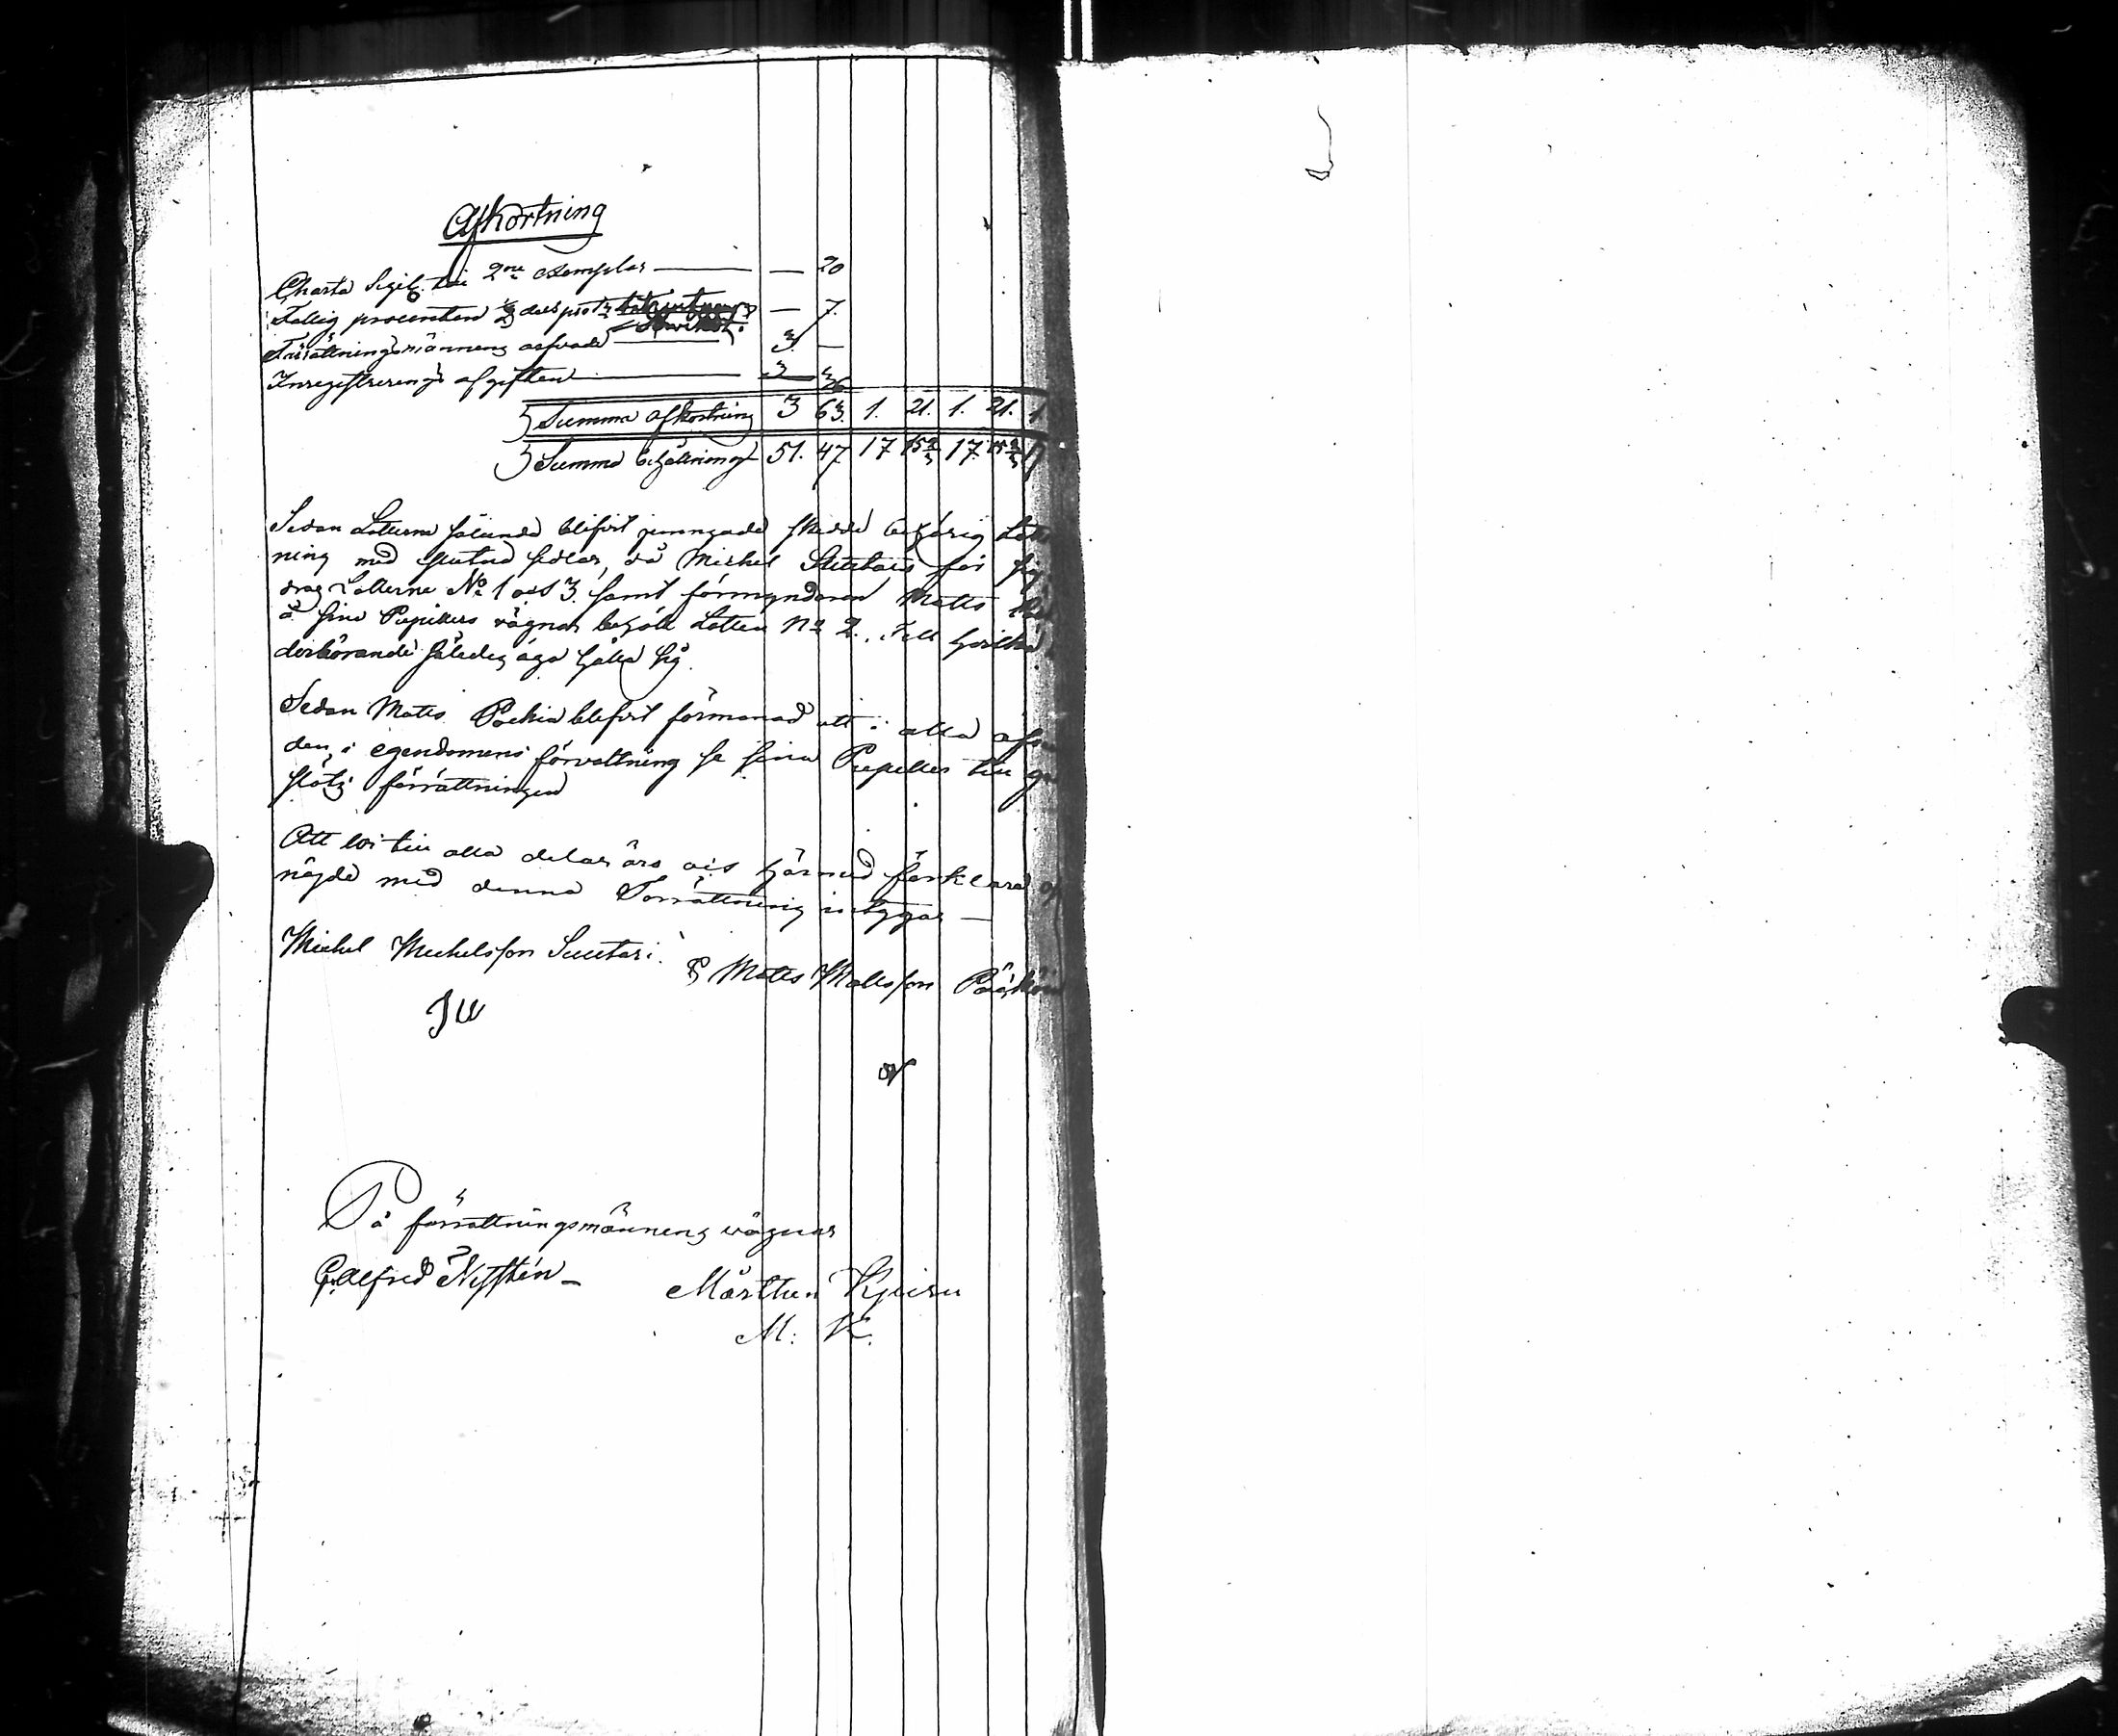 Afkortning
Charta Sigil. till 2ne exemplar — — 20
Fattig procenten — 7.
Förrättningsmännens arfvode — 3. —
Inregistrerings afgiften — 36
Summa afkortning 3 63. 1. 21. 1. 21. 1.
Summa behållning 51. 47 17 15 2/3 17. 15 2/3 17
Sedan Lotterne sålunda blifvit jemngade skedde behörig Lott
ning med slutna sedlar, då Michel för sig
drog Lotterne No 1 och 3. samt förmyndaren Matts
å sine Pupillers vägnar behöll Lotten No 2. Till hvilka
derbörande således äga hålla sig.
Sedan Matts blifvit förmanad att i alla afse
den i egendomens förvaltning se sina Pupiller till go
slöts förrättningen
Att vi till alla delar äro och härmed förklara oss
nöjde med denna Förrättning intygar —
Michel Michelsson Suutari. Matts Mattsson
På förrättningsmännens vägnar
G. Alfred Nysten — Mårthen Kjiiru
M. K.